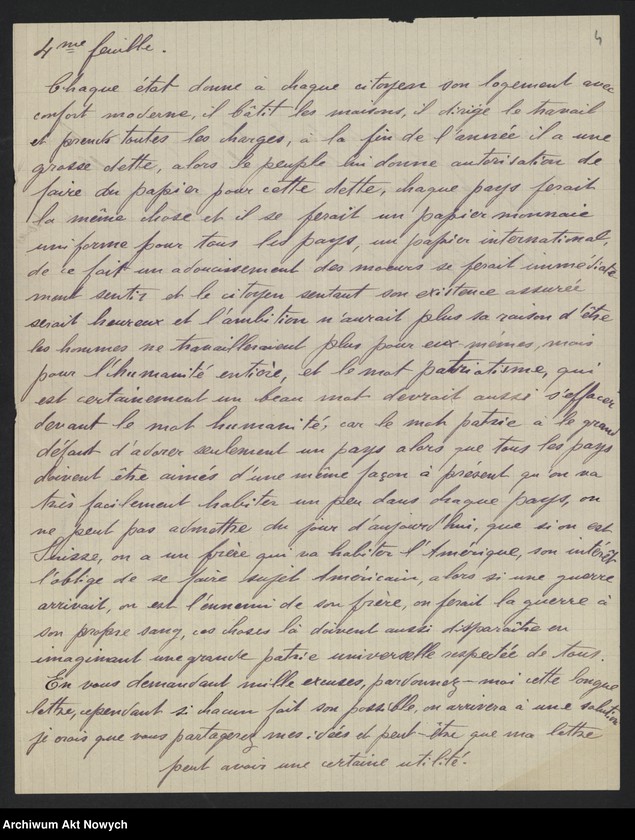 4
4me feuille.
Chaque état donne à chaque citoyen son logement avec
confort moderne, il bâtit les maisons, il dirige le travail
et prends toutes les charges, à la fin de l'année il a une
grosse dette, alors le peuple lui donne autorisation de
faire du papier pour cette dette, chaque pays ferait
la même chose et il se ferait un papier monnaie
uniforme pour tous les pays, un papier international,
de ce fait un adoucissement des moeurs se ferait immédiate
ment sentir et le citoyen sentant son existence assurée
serait heureux et l'ambition n'aurait plus sa raison d'être
les hommes ne travailleraient plus pour eux-mêmes, mais
pour l'humanité entière, et le mot patriotisme, qui
est certainement un beau mot devrait aussi s'effacer
devant le mot humanité, car le mot patrie à le grand
défaut d'adorer seulement un pays alors que tous les pays
doivent être aimés d'une même façon à présent qu'on va
très facilement habiter un peu dans chaque pays, on
ne peut pas admettre du jour d'aujourd'hui, que si on est
Suisse, on a un frère qui va habiter l'Amérique, son intérêt
l'oblige de se faire sujet Américain, alors si une guerre
arrivait, on est l'ennemi de son frère, on ferait la guerre à
son propre sang, ces choses là doivent aussi disparaître en
imaginant une grande patrie universelle respectée de tous.
En vous demandant mille excuses, pardonnez-moi cette longue
lettre, cependant si chacun fait son possible, on arrivera à une solution
je crois que vous partagerez mes idées et peut-être que ma lettre
peut avoir une certaine utilité.
Archiwum Akt Nowych